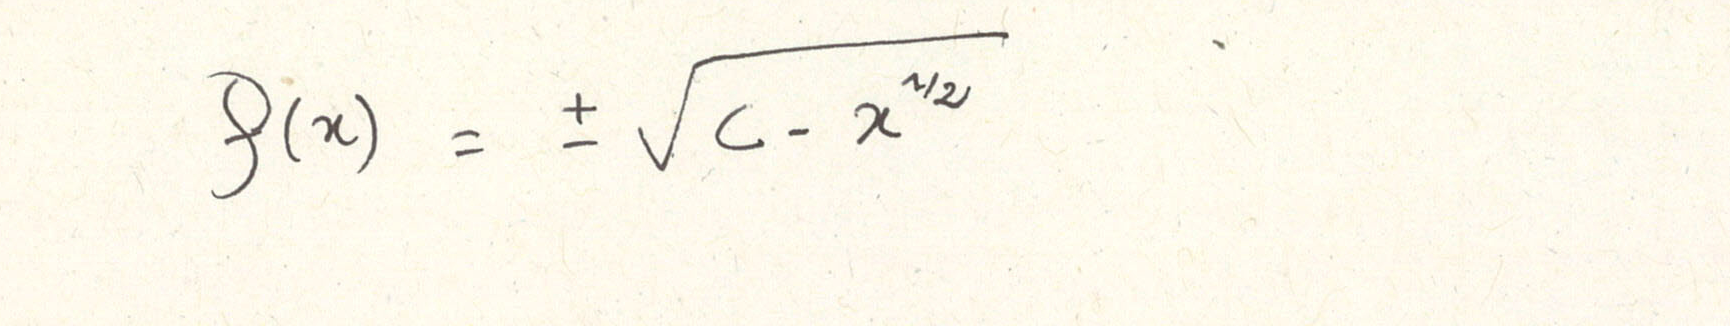 f(x) = ± √(c - x^1/2)